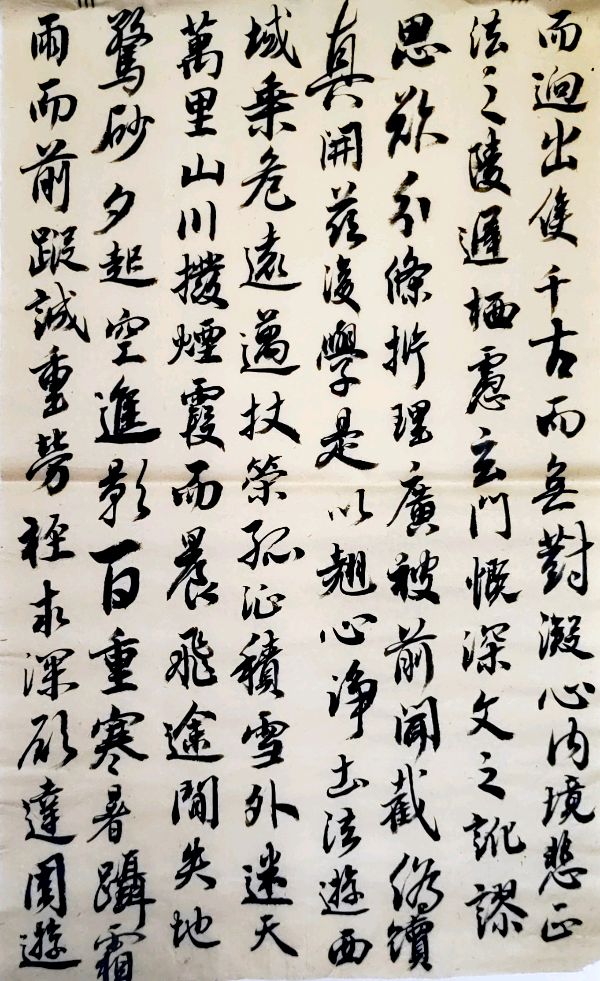 而迥出隻千古而無對凝心內境悲正
法之陵遲栖慮玄門慨深文之訛謬
思欲分條析理廣彼前聞截偽續
真開茲後學是以翹心淨土法遊西
域乘危遠邁杖策孤征積雪外迷天
萬里山川撥煙霞而晨飛途閒失地
驚砂夕起空進影百重寒暑躡霜
雨而前蹤誠重勞輕求深願達周遊